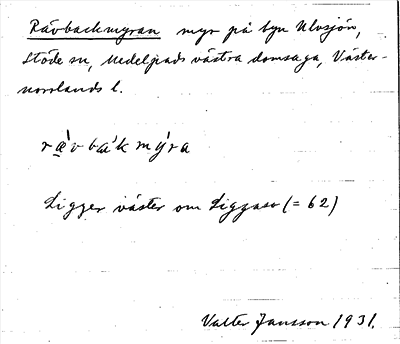 Rävbackmyran myr på byn Ulvsjön,
Stöde sn, Medelpads västra domsaga, Väster-
norrlands l.
ræ̀vbákmỳra
Ligger väster om Liggaso (= 62)
Valter Jansson 1931.